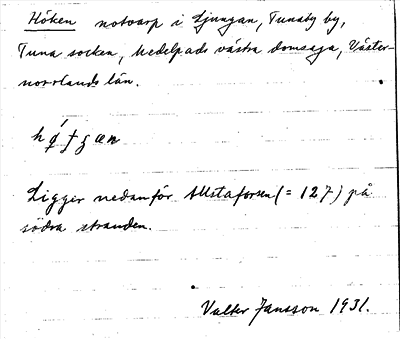 Höken notvarp i Ljungan, Tunaby by,
Tuna socken, Medelpads västra domsaga, Väster-
norrlands län.
Ligger nedanför Allstaforsen (= 127) på
södra stranden.
Valter Jansson 1931.